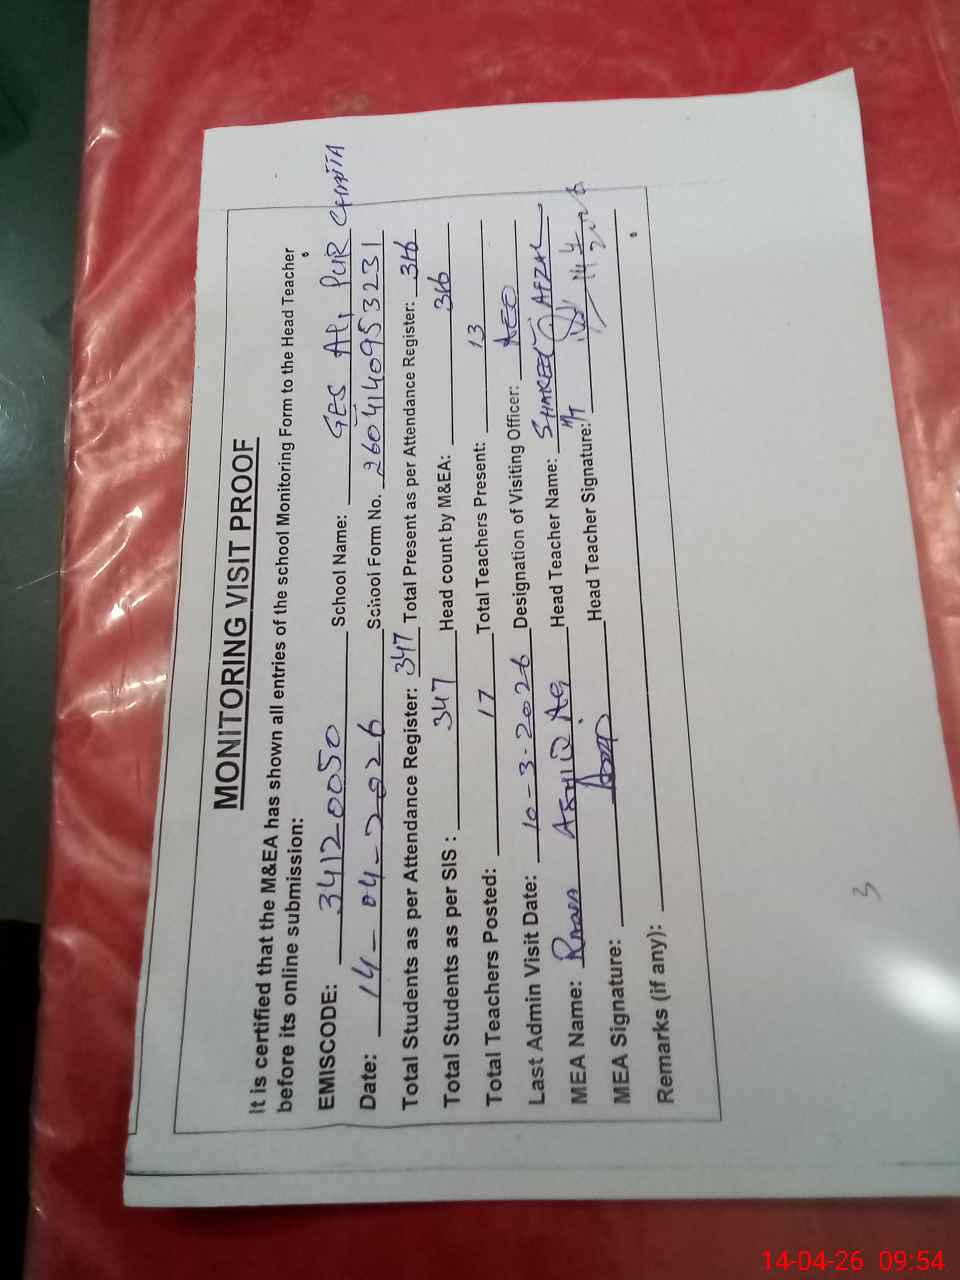 MONITORING VISIT PROOF
It is certified that the M&EA has shown all entries of the school Monitoring Form to the Head Teacher
before its online submission:
EMISCODE: 34120050 School Name: GES ALI PUR CHATTA
Date: 14-04-2026 School Form No. 2604140953231
Total Students as per Attendance Register: 347 Total Present as per Attendance Register: 316
Total Students as per SIS : 347 Head count by M&EA: 316
Total Teachers Posted: 17 Total Teachers Present: 13
Last Admin Visit Date: 10-3-2026 Designation of Visiting Officer: AEO
MEA Name: Rana Head Teacher Name: SHAKEEL AFZAL
MEA Signature: Head Teacher Signature: 14 4 2026
Remarks (if any):
3
14-04-26 09:54